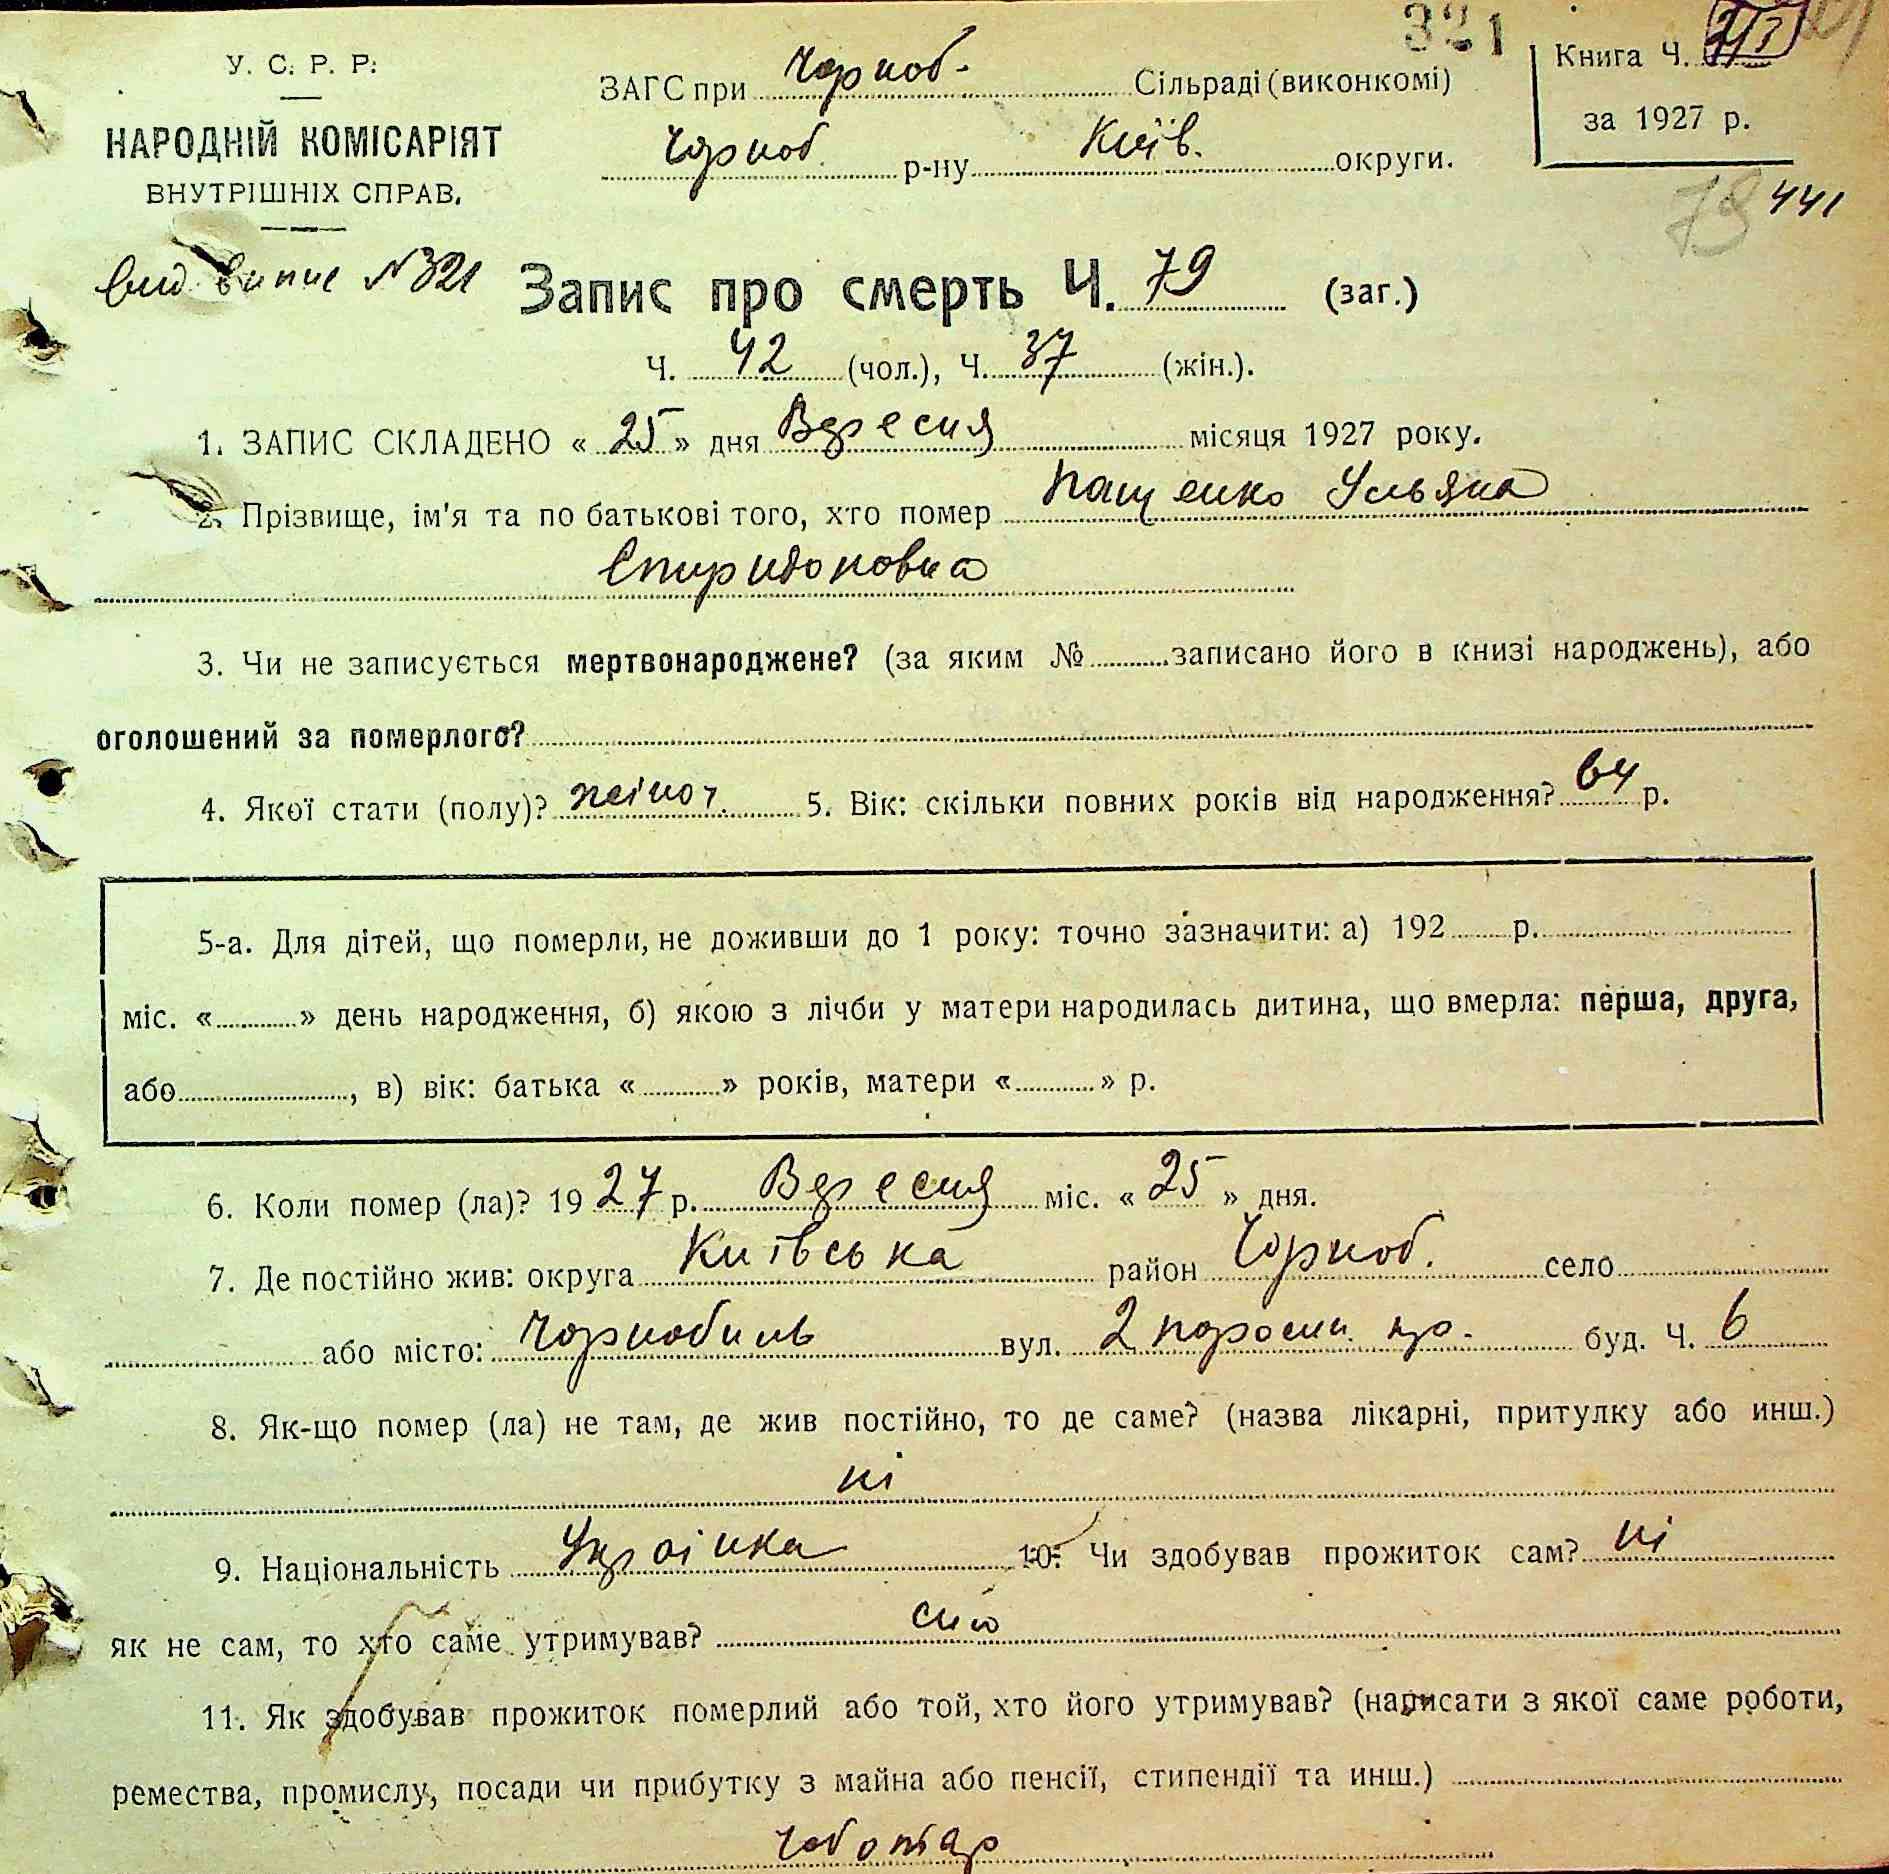 321
У. С. Р. Р.
НАРОДНІЙ КОМІСАРІЯТ
ВНУТРІШНІХ СПРАВ.
ЗАГС при Чорноб. Сільраді (виконкомі)
Чорноб. р-ну Київ. округи.
Книга Ч.
за 1927 р.
79 441
вид випис №321
Запис про смерть Ч. 79 (заг.)
Ч. 42 (чол.), Ч. 37 (жін.).
1. ЗАПИС СКЛАДЕНО « 25 » дня Вересня місяця 1927 року.
2. Прізвище, ім'я та по батькові того, хто помер Пащенко Ульяна
Спиридоновна
3. Чи не записується мертвонароджене? (за яким № записано його в книзі народжень), або
оголошений за померлого?
4. Якої стати (полу)? жіноч. 5. Вік: скільки повних років від народження? 64 р.
5-а. Для дітей, що померли, не доживши до 1 року: точно зазначити: а) 192 р.
міс. « » день народження, б) якою з лічби у матери народилась дитина, що вмерла: перша, друга,
або , в) вік: батька « » років, матери « » р.
6. Коли помер (ла)? 19 27 р. Вересня міс. « 25 » дня.
7. Де постійно жив: округа Київська район Чорноб. село
або місто: Чорнобиль вул. 2 буд. Ч. 6
8. Як-що помер (ла) не там, де жив постійно, то де саме? (назва лікарні, притулку або инш.)
ні
9. Національність Українка 10. Чи здобував прожиток сам? ні
як не сам, то хто саме утримував? син
11. Як здобував прожиток померлий або той, хто його утримував? (написати з якої саме роботи,
ремества, промислу, посади чи прибутку з майна або пенсії, стипендії та инш.)
Чоботар